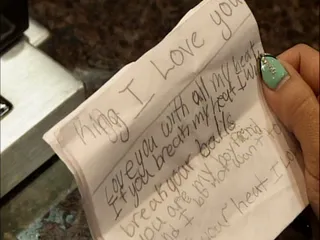 King I Love you
Love you with all my heart
If you break my heart I will
break your balls
you are my boyfriend
and I do not want to
your heat I